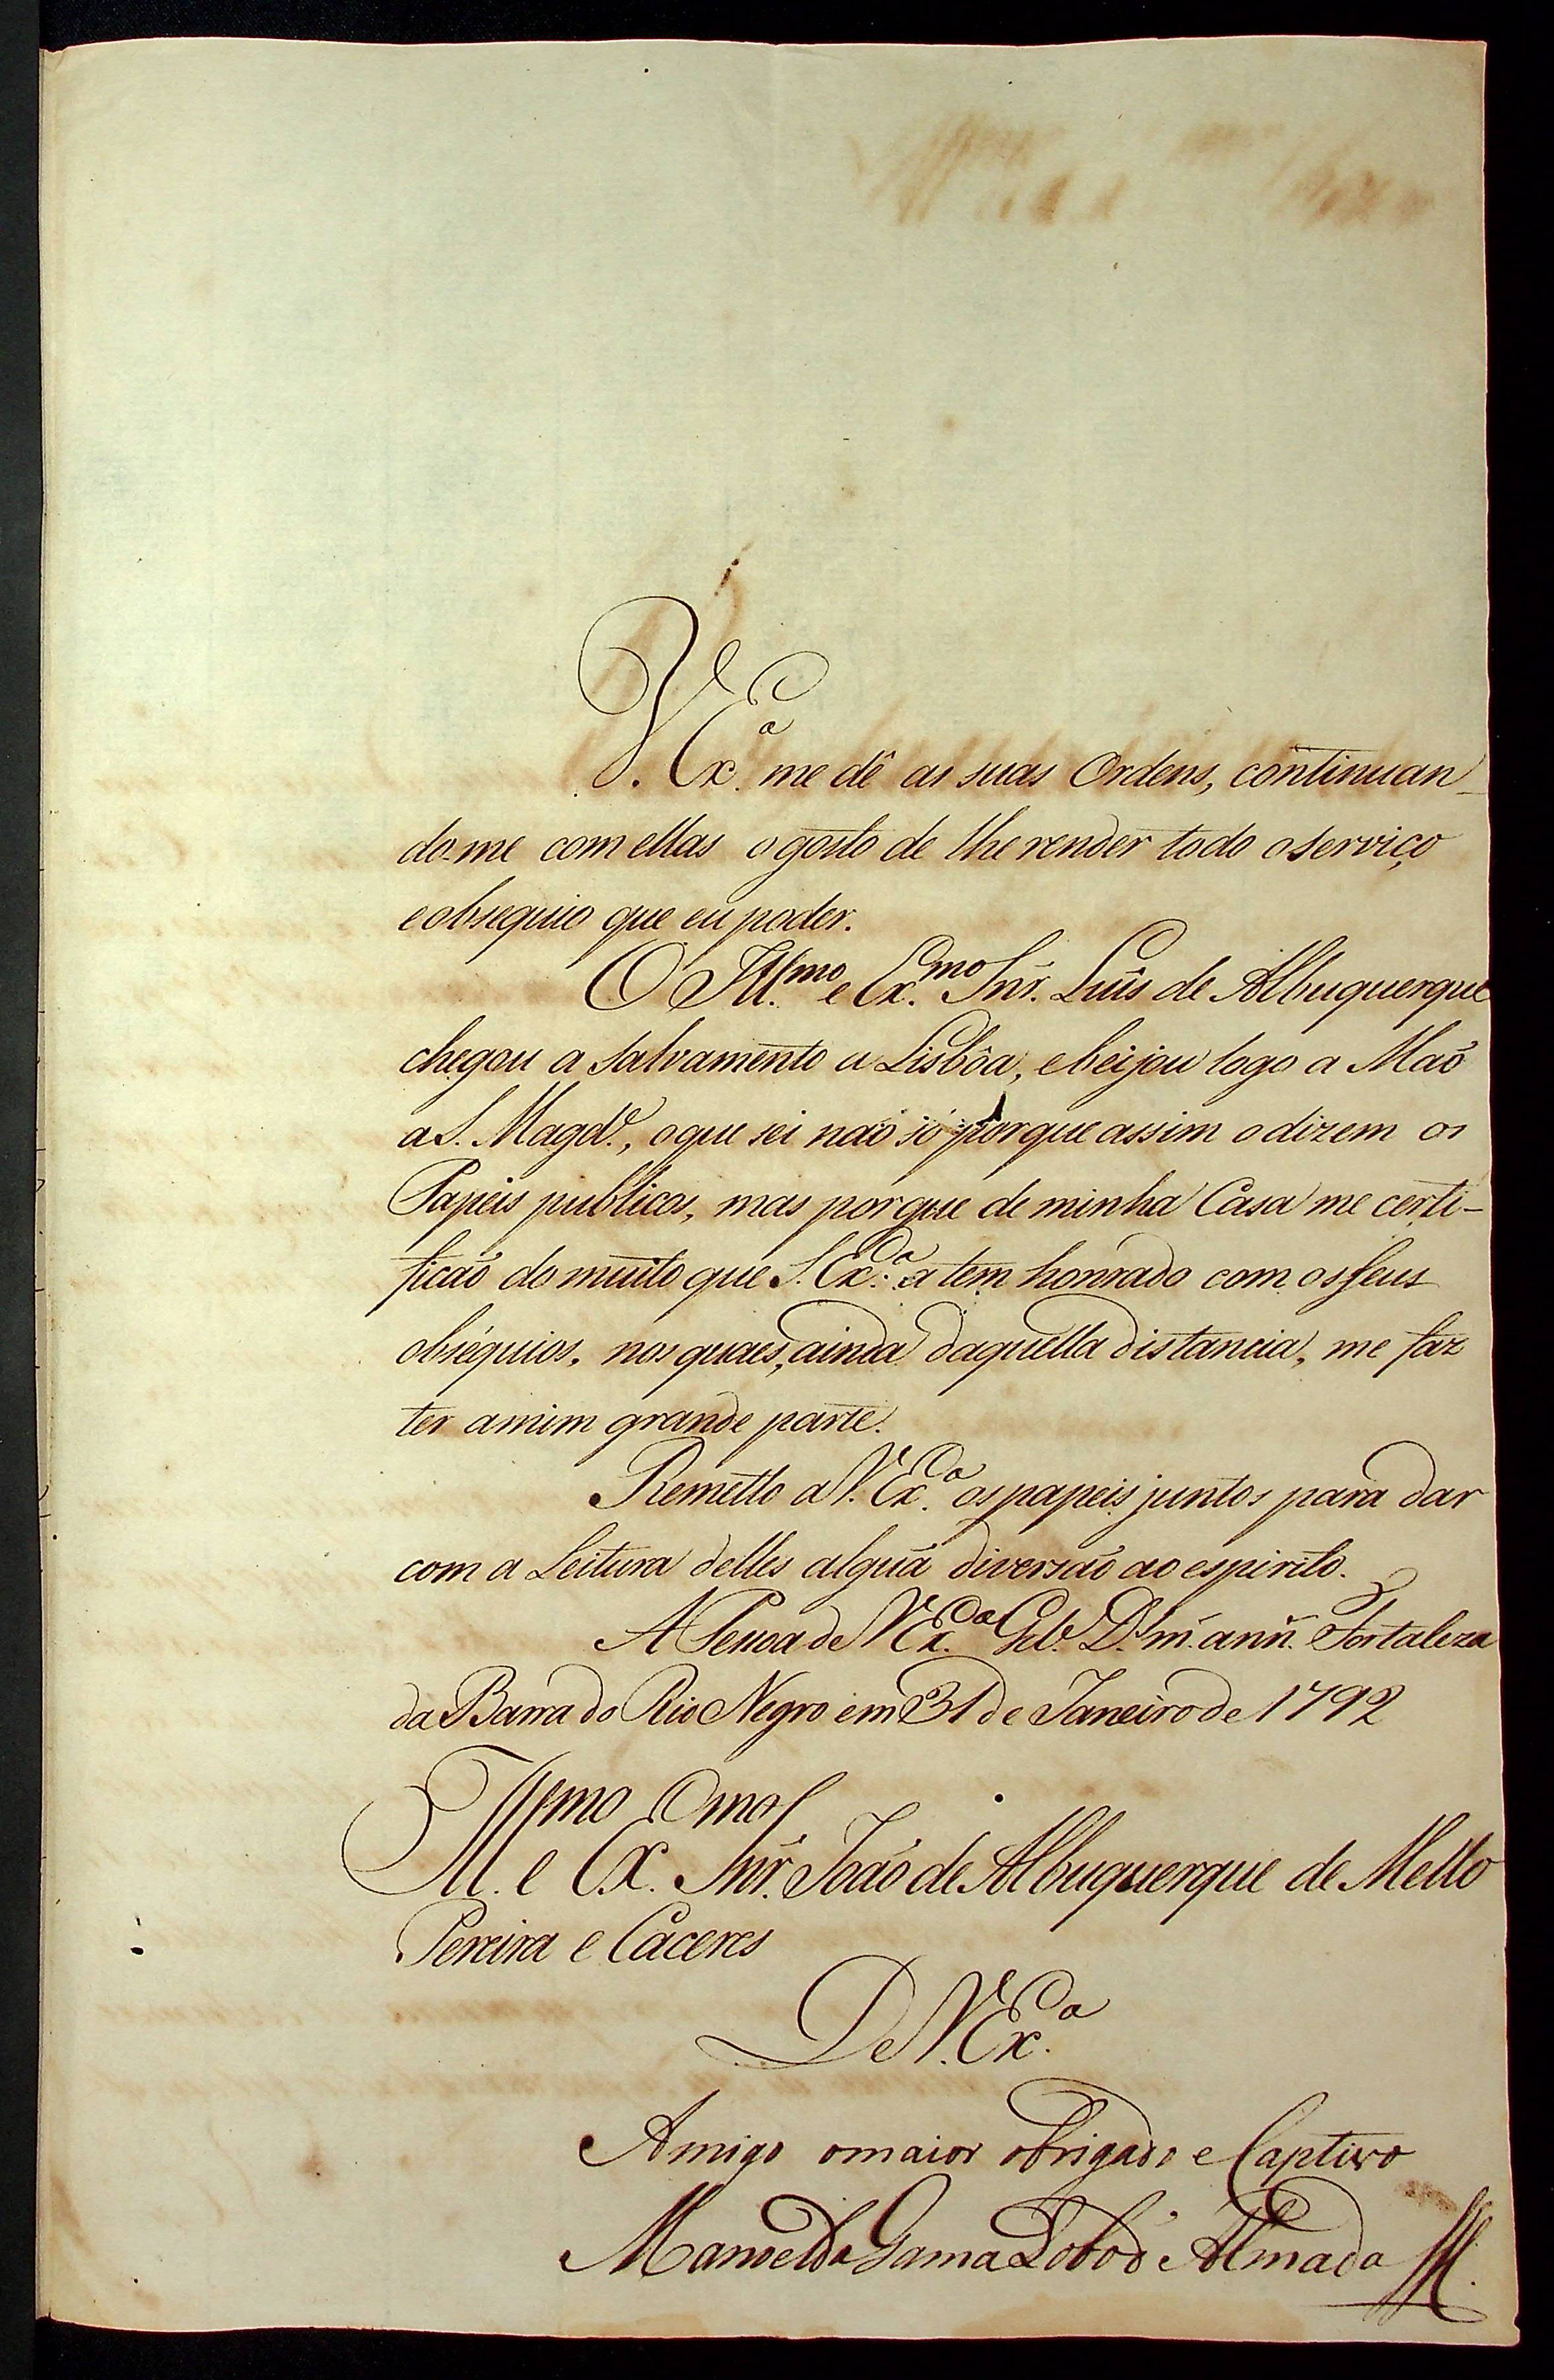 V. Ex.ª me dê as suas Ordens, continuan-
do-me com ellas o gosto de lhe render todo o serviço
e obsequio que eu poder.
O Ill.mo e Ex.mo Snr. Luis de Albuquerque
chegou a salvamento a Lisbôa, e beijou logo a Maõ
a S. Magd.e, o que sei naõ só porque assim o dizem os
Papeis publicos, mas porque de minha Casa me certi-
ficaõ do muito que S. Ex.ca a tem honrado com os seus
obséquios, nos quaes, ainda daquella distancia, me faz
ter a mim grande parte.
Remetto a V. Ex.ca os papeis juntos para dar
com a Leitura delles alguã diversaõ ao espirito.
A Pessoa de V. Ex.ca G.de D.s m. ann. Fortaleza
da Barra do Rio Negro em 31 de Janeiro de 1792
Ill.mo e Ex.mo Snr. Joaõ de Albuquerque de Mello
Pereira e Caceres
De V. Ex.ca
Amigo o maior obrigado e Captivo
Manoel da Gama Lobo d'Almada